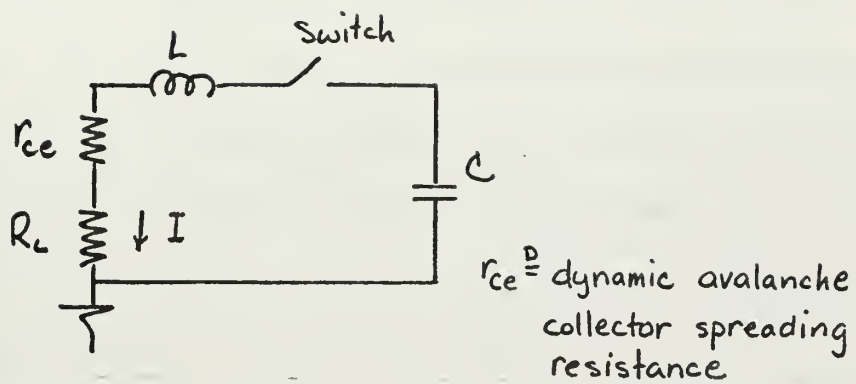 L
Switch
r_ce
C
R_L
↓ I
r_ce ≝ dynamic avalanche
collector spreading
resistance